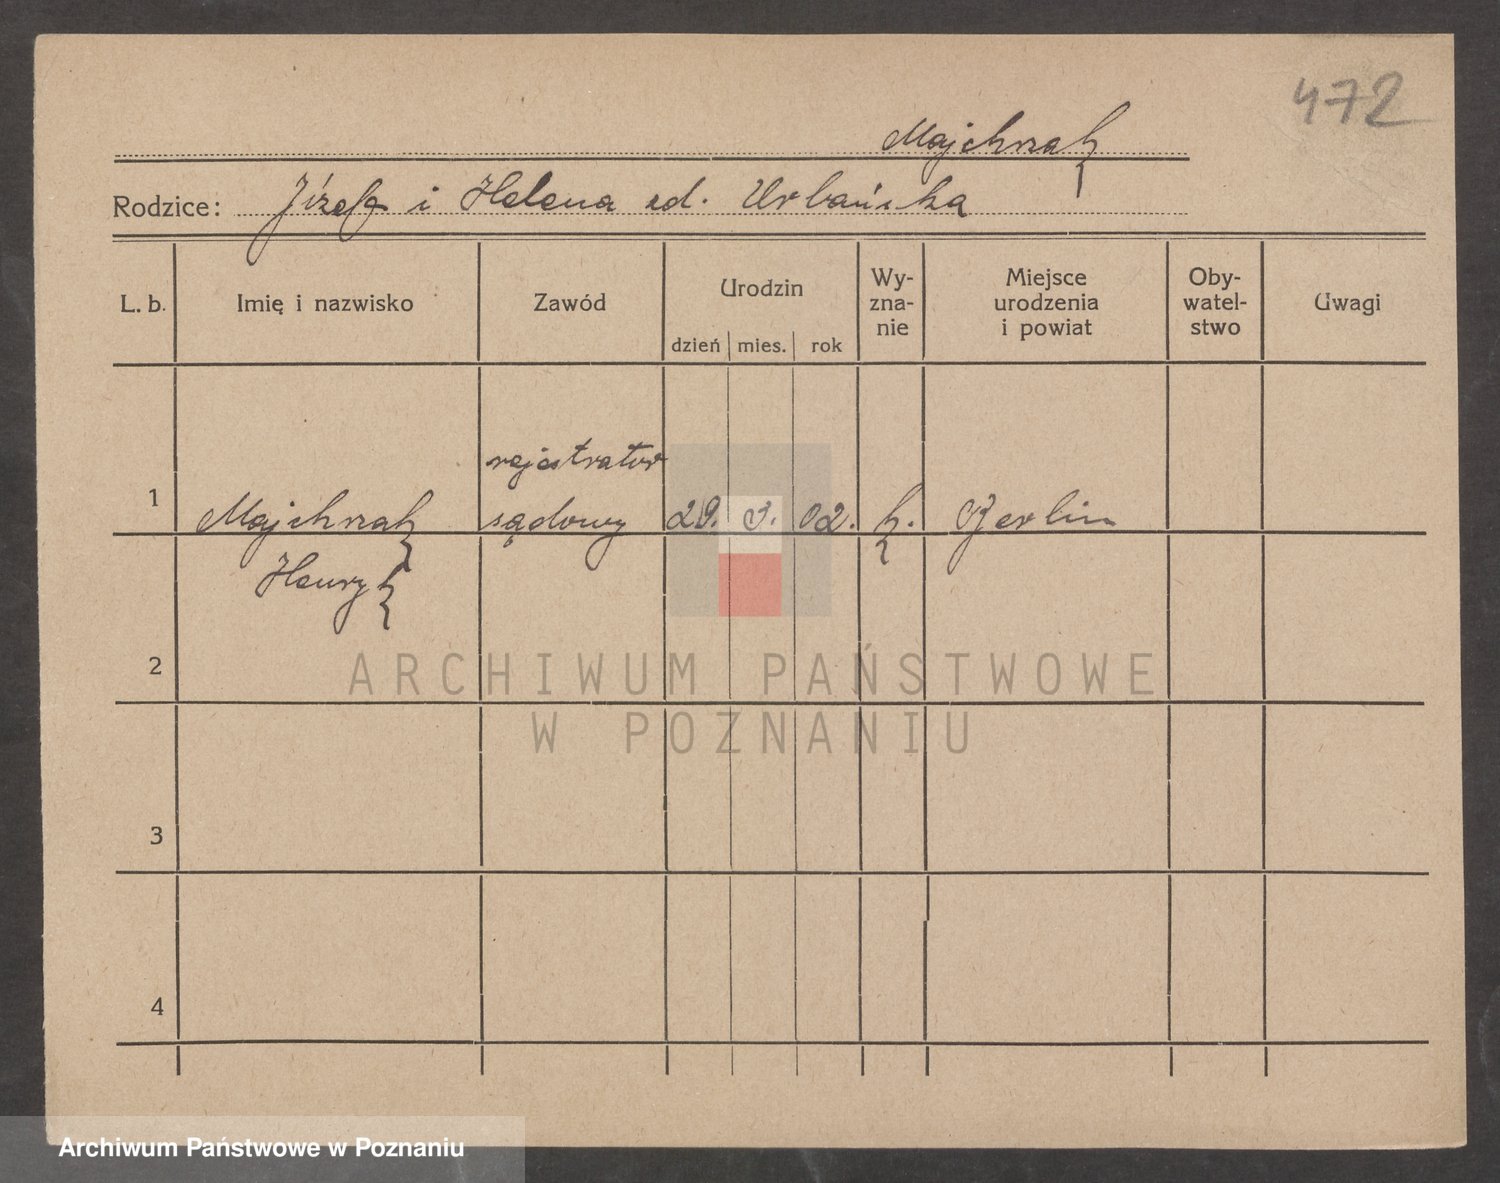 472
Majchrzak
Rodzice: Józef i Helena zd. Urbańska
L. b. Imię i nazwisko Zawód Urodzin dzień mies. rok Wy- zna- nie Miejsce urodzenia i powiat Oby- watel- stwo Uwagi
rejestrator
1 Majchrzak sądowy 29. 02. k. Berlin
Henryk
2
3
4
ARCHIWUM PAŃSTWOWE
W POZNANIU
Archiwum Państwowe w Poznaniu